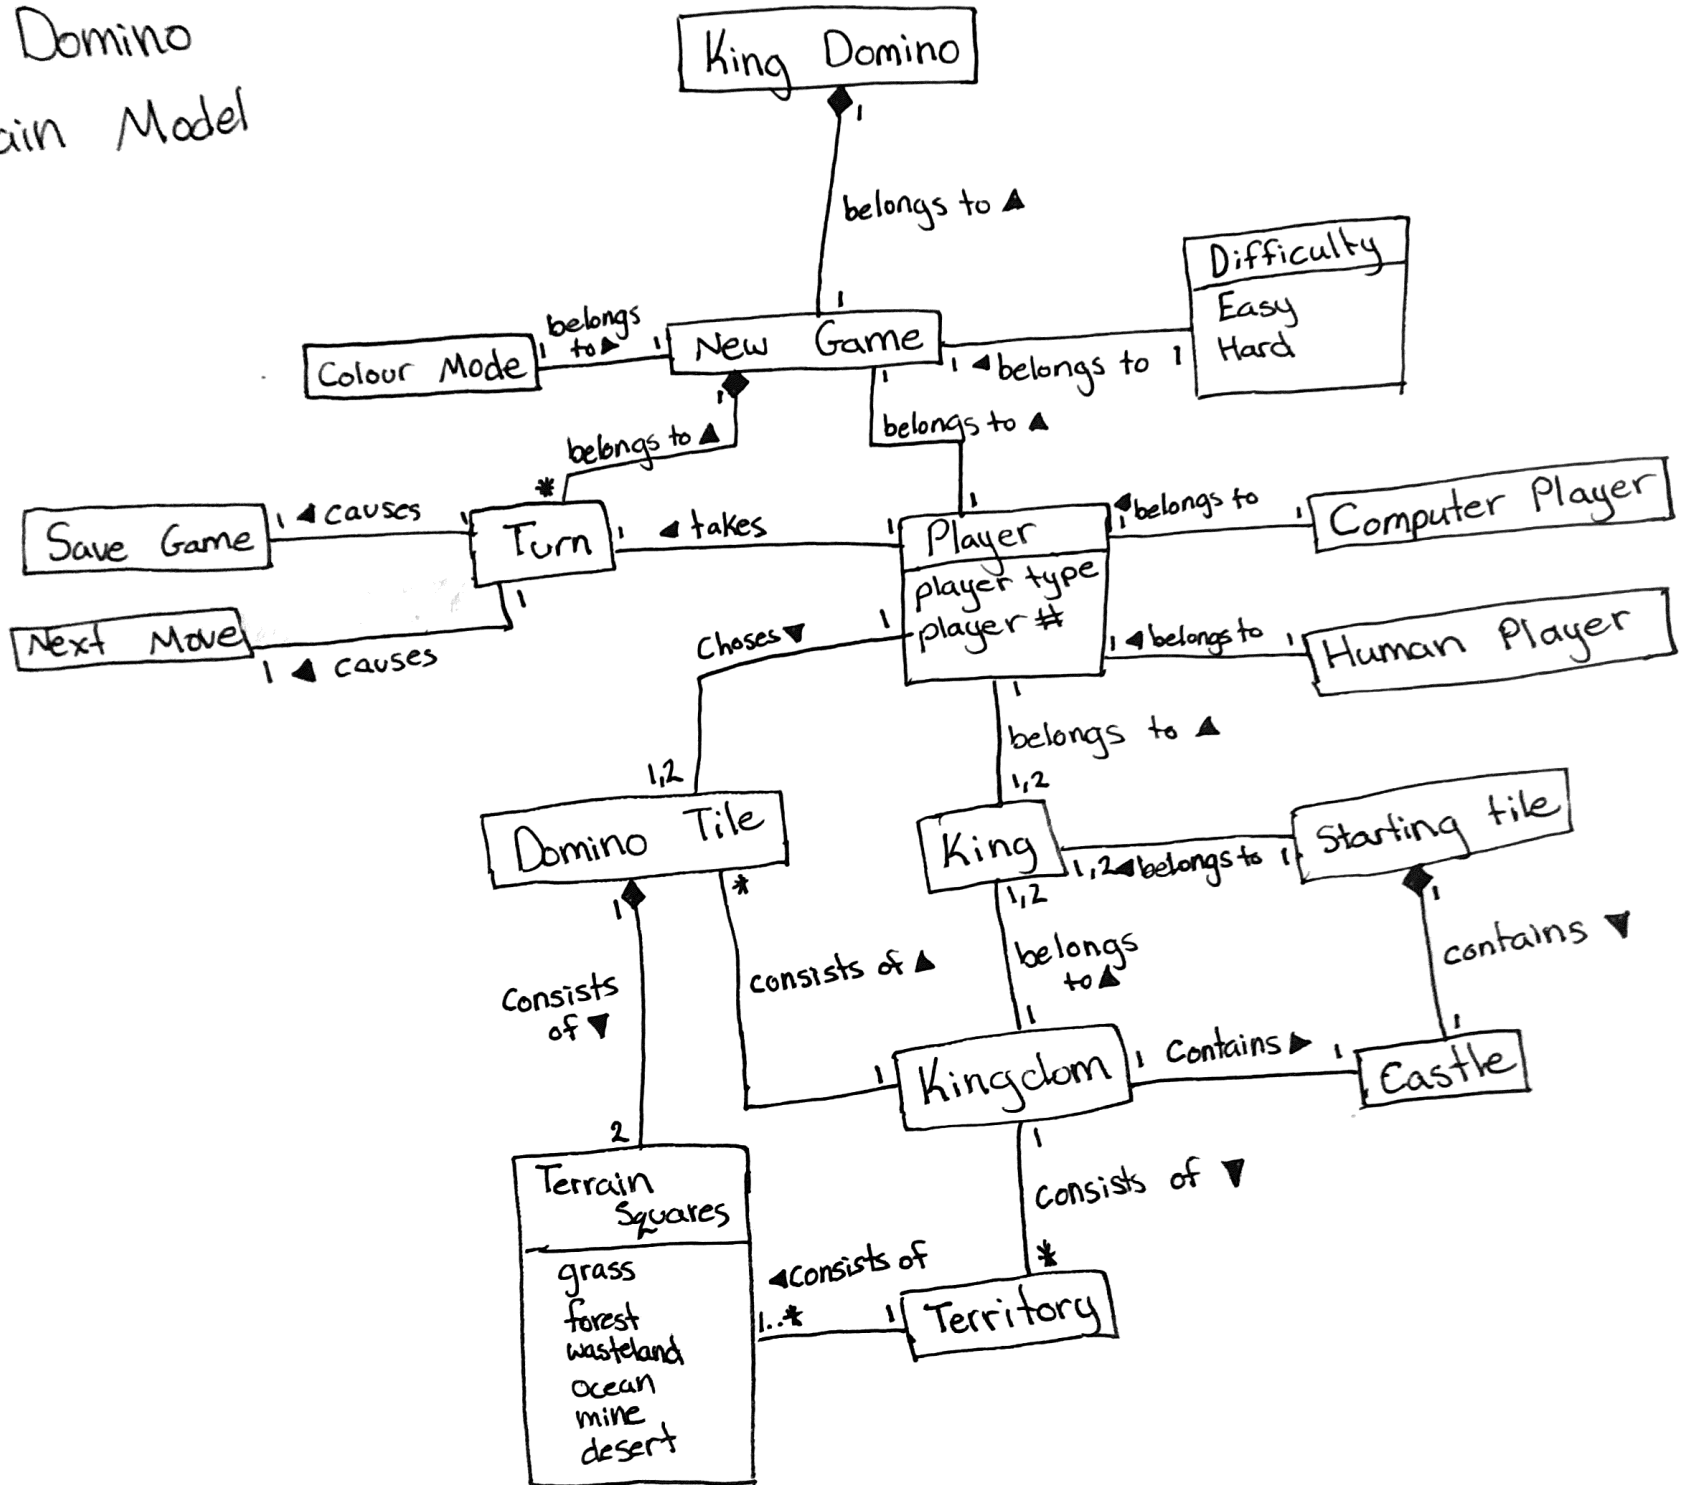 Domino
ain Model
King Domino
1
belongs to ▲
1
Difficulty
Easy
Hard
belongs
to ▶
1
1
New Game
Colour Mode
1 ◀ belongs to 1
1
1
belongs to ▲
belongs to ▲
*
1
Save Game
1 ◀ causes 1
Turn
1 ◀ takes 1
Player
player type
player #
◀ belongs to
1
1
Computer Player
1
Next Move
1 ◀ causes
Choses ▼
1
1 ◀ belongs to 1
Human Player
1
belongs to ▲
1,2
1,2
Domino Tile
King
1,2 ◀ belongs to 1
Starting tile
1
*
1,2
1
contains ▼
belongs
to ▲
consists of ▲
Consists
of ▼
1
1
1
Kingdom
1 Contains ▶ 1
Castle
2
1
consists of ▼
Terrain
Squares
grass
forest
wasteland
ocean
mine
desert
*
◀ consists of
1..*
1
Territory